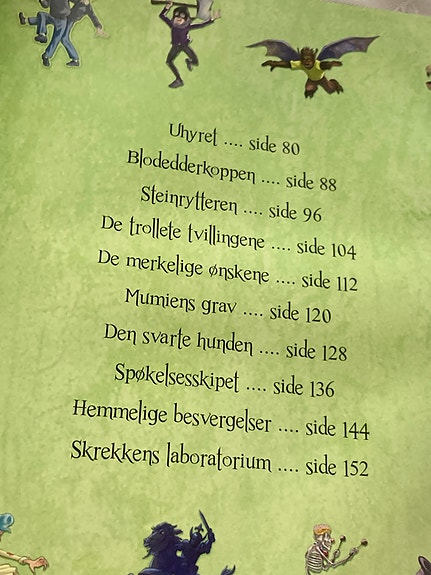 Uhyret .... side 80
Blodedderkoppen .... side 88
Steinrytteren .... side 96
De trollete tvillingene .... side 104
De merkelige ønskene .... side 112
Mumiens grav .... side 120
Den svarte hunden .... side 128
Spøkelsesskipet .... side 136
Hemmelige besvergelser .... side 144
Skrekkens laboratorium .... side 152